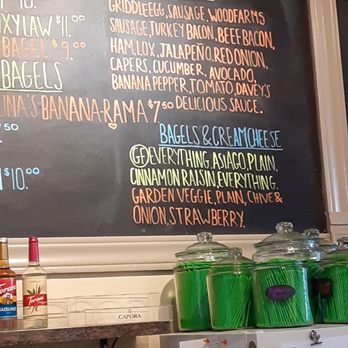 OXYLAW $11.00
BAGEL $9.00
BAGELS
INA'S BANANA.RAMA $7.50
50
$10.00
GRIDDLE EGG, SAUSAGE, WOOD FARMS
SAUSAGE, TURKEY BACON, BEEF BACON,
HAM, LOX, JALAPEÑO, RED ONION,
CAPERS, CUCUMBER, AVOCADO,
BANANA PEPPER, TOMATO, DAVEY'S
DELICIOUS SAUCE.
BAGELS & CREAM CHEESE
GF EVERYTHING, ASIAGO, PLAIN,
CINNAMON RAISIN, EVERYTHING.
GARDEN VEGGIE, PLAIN, CHIVE &
ONION, STRAWBERRY.
Torani
Torani
CAPORA